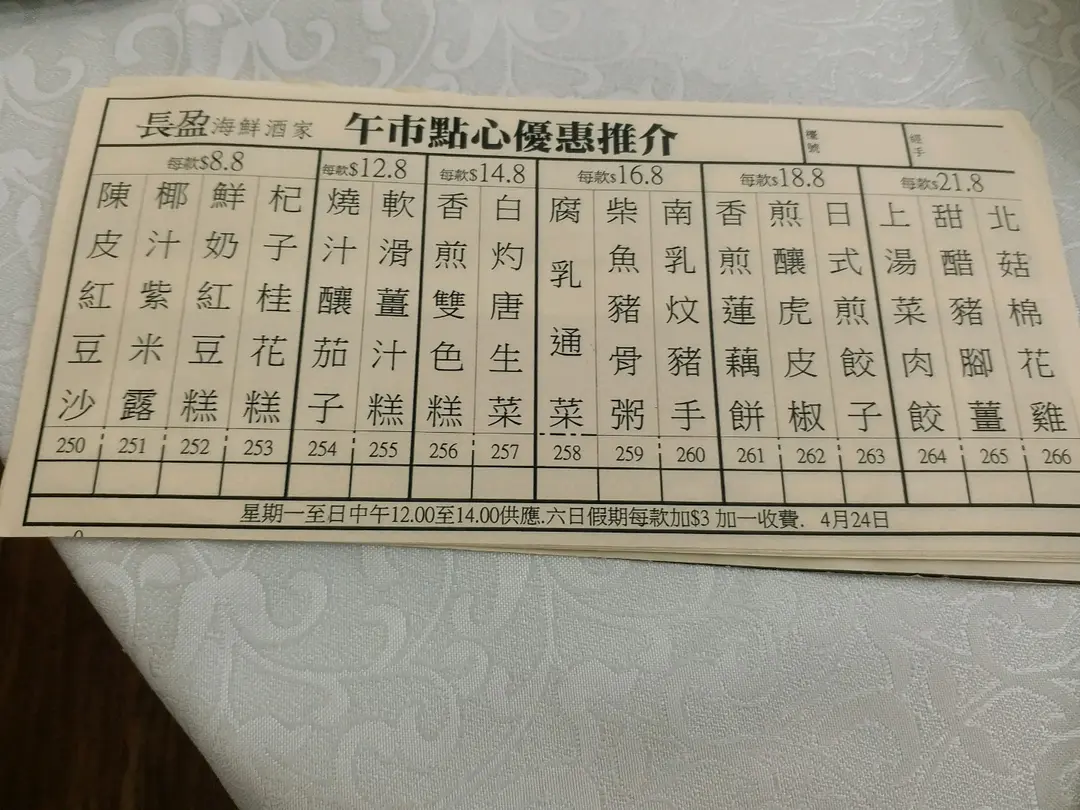 長盈海鮮酒家 午市點心優惠推介 檯號 經手
每款$8.8 每款$12.8 每款$14.8 每款$16.8 每款$18.8 每款$21.8
陳皮紅豆沙 250
椰汁紫米露 251
鮮奶紅豆糕 252
杞子桂花糕 253
燒汁釀茄子 254
軟滑薑汁糕 255
香煎雙色糕 256
白灼唐生菜 257
腐乳通菜 258
柴魚豬骨粥 259
南乳炆豬手 260
香煎蓮藕餅 261
煎釀虎皮椒 262
日式煎餃子 263
上湯菜肉餃 264
甜醋豬腳薑 265
北菇棉花雞 266
星期一至日中午12.00至14.00供應.六日假期每款加$3 加一收費. 4月24日